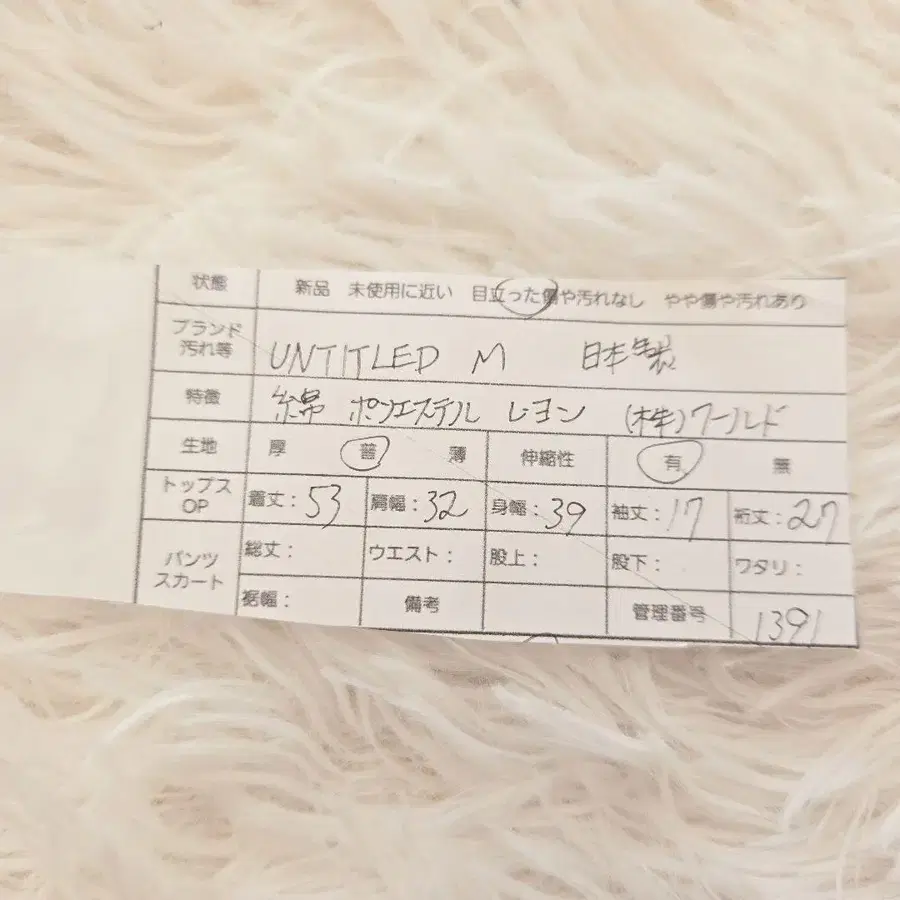 状態 新品 未使用に近い 目立った傷や汚れなし やや傷や汚れあり
ブランド
汚れ等 UNTITLED M 日本製
特徴 綿 ポリエステル レーヨン (株)ワールド
生地 厚 普 薄 伸縮性 有 無
トップス
OP 着丈: 53 肩幅: 32 身幅: 39 袖丈: 17 裄丈: 27
パンツ
スカート 総丈: ウエスト: 股上: 股下: ワタリ:
裾幅: 備考 管理番号 1391